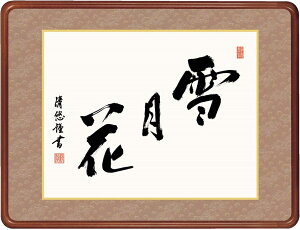 雪
月
花
清悠謹書